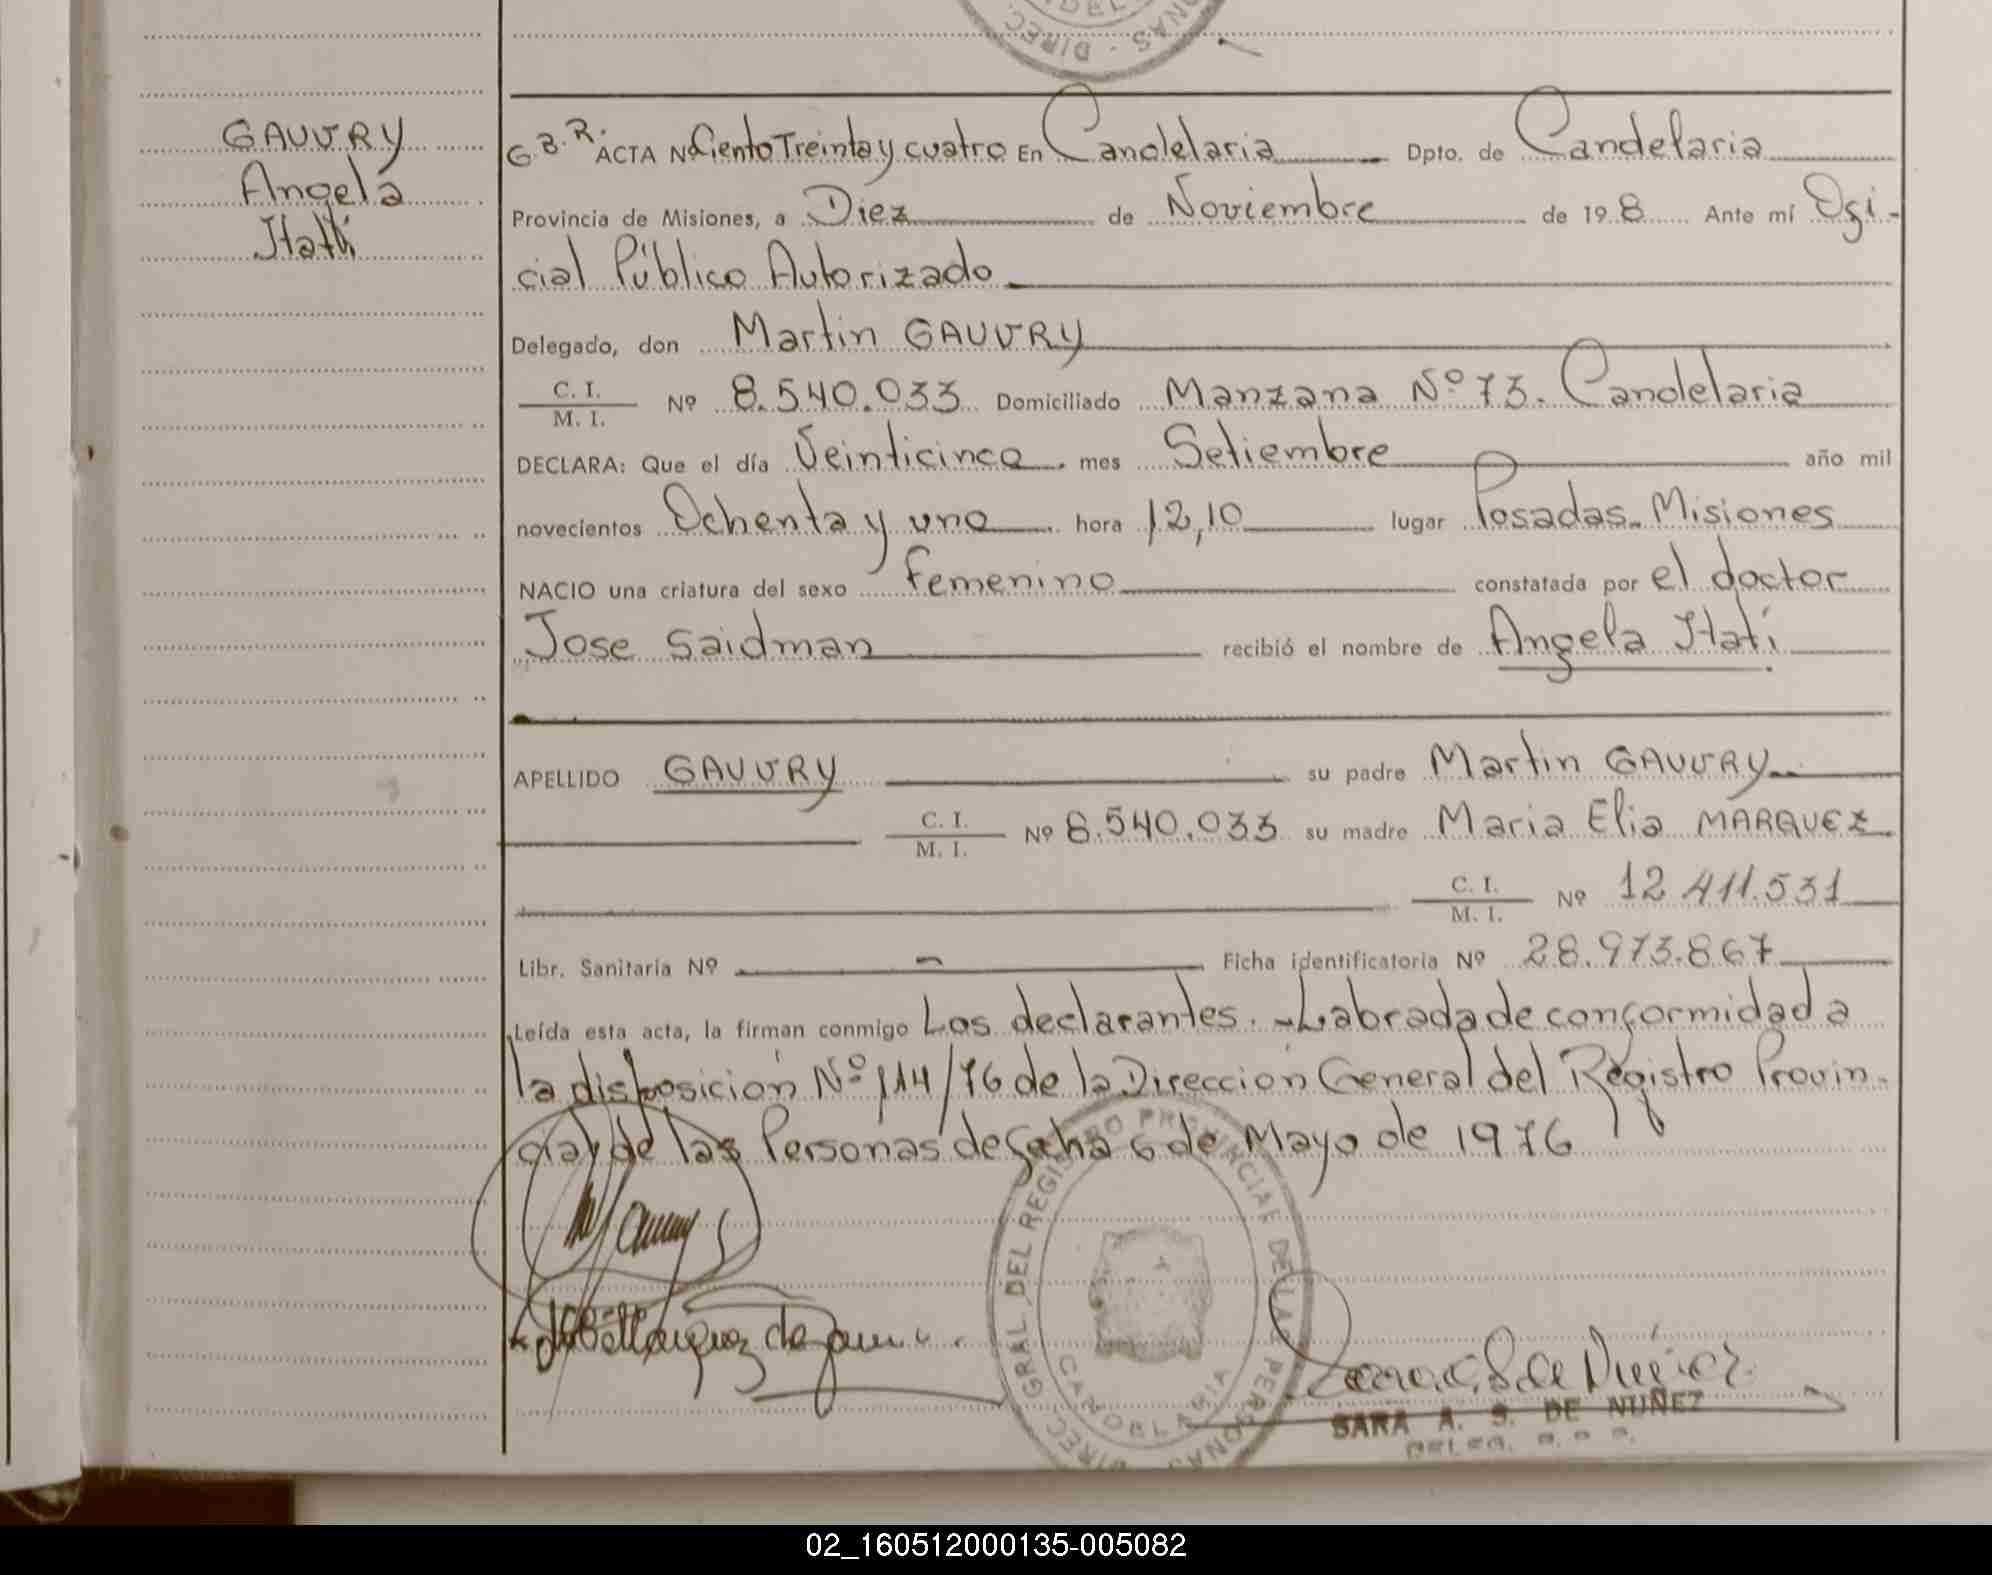 DIREC.
NAS
GAUVRY
Angela
Itatí
G.B.R. ACTA Nº Ciento Treinta y cuatro En Candelaria Dpto. de Candelaria
Provincia de Misiones, a Diez de Noviembre de 19 8 Ante mí Ofi-
cial Público Autorizado
Delegado, don Martin GAUVRY
C. I. / M. I. Nº 8.540.033 Domiciliado Manzana Nº 73. Candelaria
DECLARA: Que el día Veinticinco mes Setiembre año mil
novecientos Ochenta y uno hora 12,10 lugar Posadas. Misiones
NACIO una criatura del sexo femenino constatada por el doctor
Jose Saidman recibió el nombre de Angela Itatí
APELLIDO GAUVRY su padre Martin GAUVRY
C. I. / M. I. Nº 8.540.033 su madre Maria Elia MARQUEZ
C. I. / M. I. Nº 12.411.531
Libr. Sanitaria Nº - Ficha identificatoria Nº 28.973.867
Leída esta acta, la firman conmigo Los declarantes.-Labrada de conformidad a
la disposición Nº 114/76 de la Dirección General del Registro Provin-
cial de las Personas de fecha 6 de Mayo de 1976
DIREC. GRAL. DEL REGISTRO PROVINCIAL DE LAS PERSONAS
CANDELARIA
SARA A. S. DE NUÑEZ
02_160512000135-005082